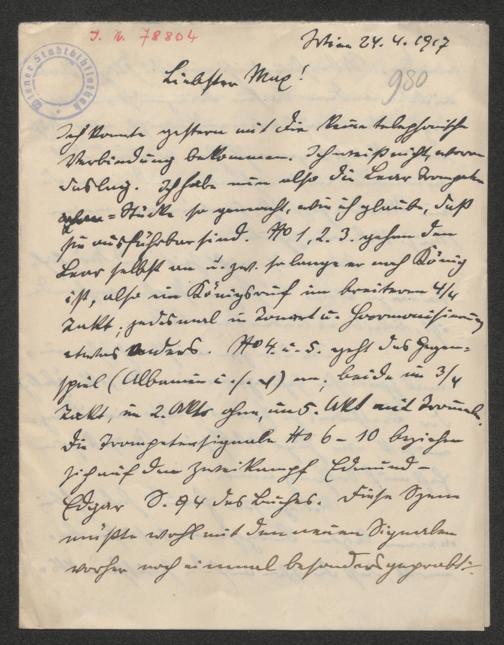 J. N. 78804
Wien 24.4.1917
Wiener Stadtbibliothek
980
Liebster Max!
Ich konnte gestern mit Dir keine telephonische
Verbindung bekommen. Ich weiß nicht, woran
das lag. Ich habe nun also die Lear Trompeten
=Stücke so gemacht, wie ich glaube, daß
sie ausführbar sind. No 1, 2. 3. gehen den
Lear selbst an u. zw. solange er noch König
ist, also im Königsruf im breiteren 4/4
Takt; jedesmal in Tonart u. Harmonisierung
etwas anders. No 4. u. 5. geht das Gegen=
spiel (Albanien u. s. w) an; beide im 3/4
Takt, im 2. Akt ohne, im 5. Akt mit Trommel.
Die Trompetersignale No 6 - 10 beziehen
sich auf den Zweikampf Edmund -
Edgar S. 94 des Buches. Diese Szene
müßte wohl mit den neuen Signalen
vorher noch einmal besonders geprobt